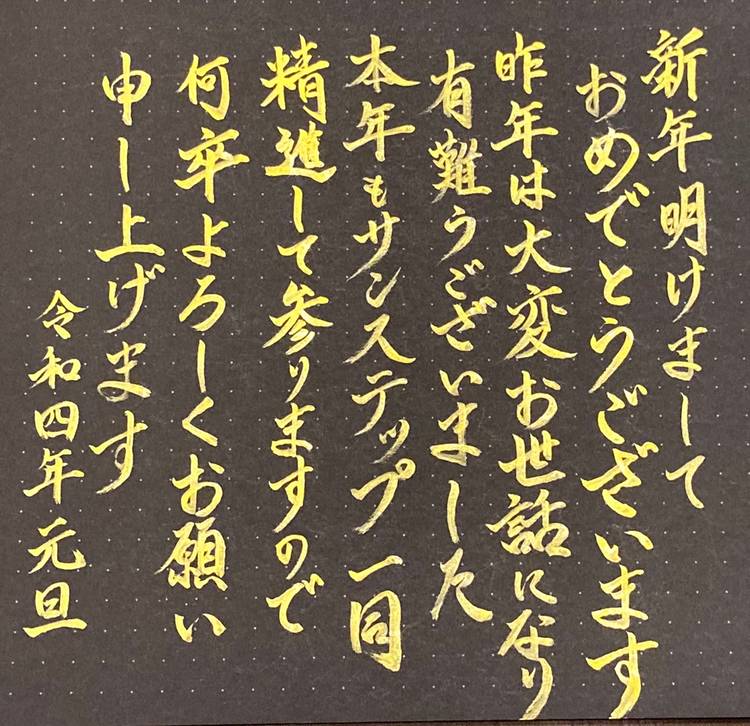 新年明けまして
おめでとうございます
昨年は大変お世話になり
有難うございました
本年もサンステップ一同
精進して参りますので
何卒よろしくお願い
申し上げます
令和四年元旦